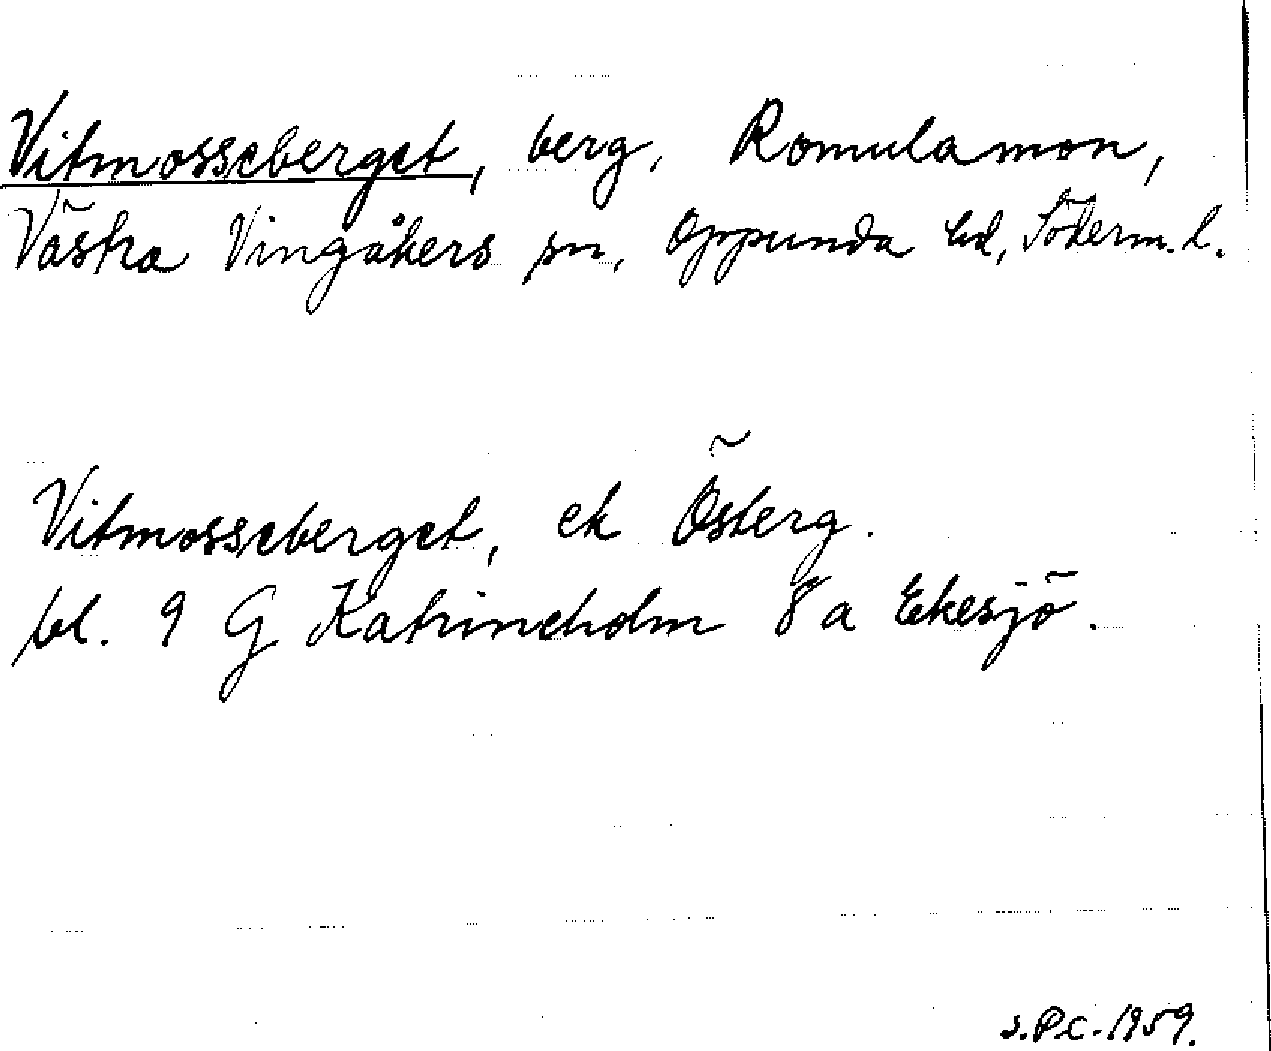 Vitmosseberget, berg, Romulamon,
Västra Vingåkers sn, Oppunda hd, Söderm. l.
Vitmosseberget, ek Österg.
bl. 9 G Katrineholm 8 a Ekesjö.
s.P.C. 1959.